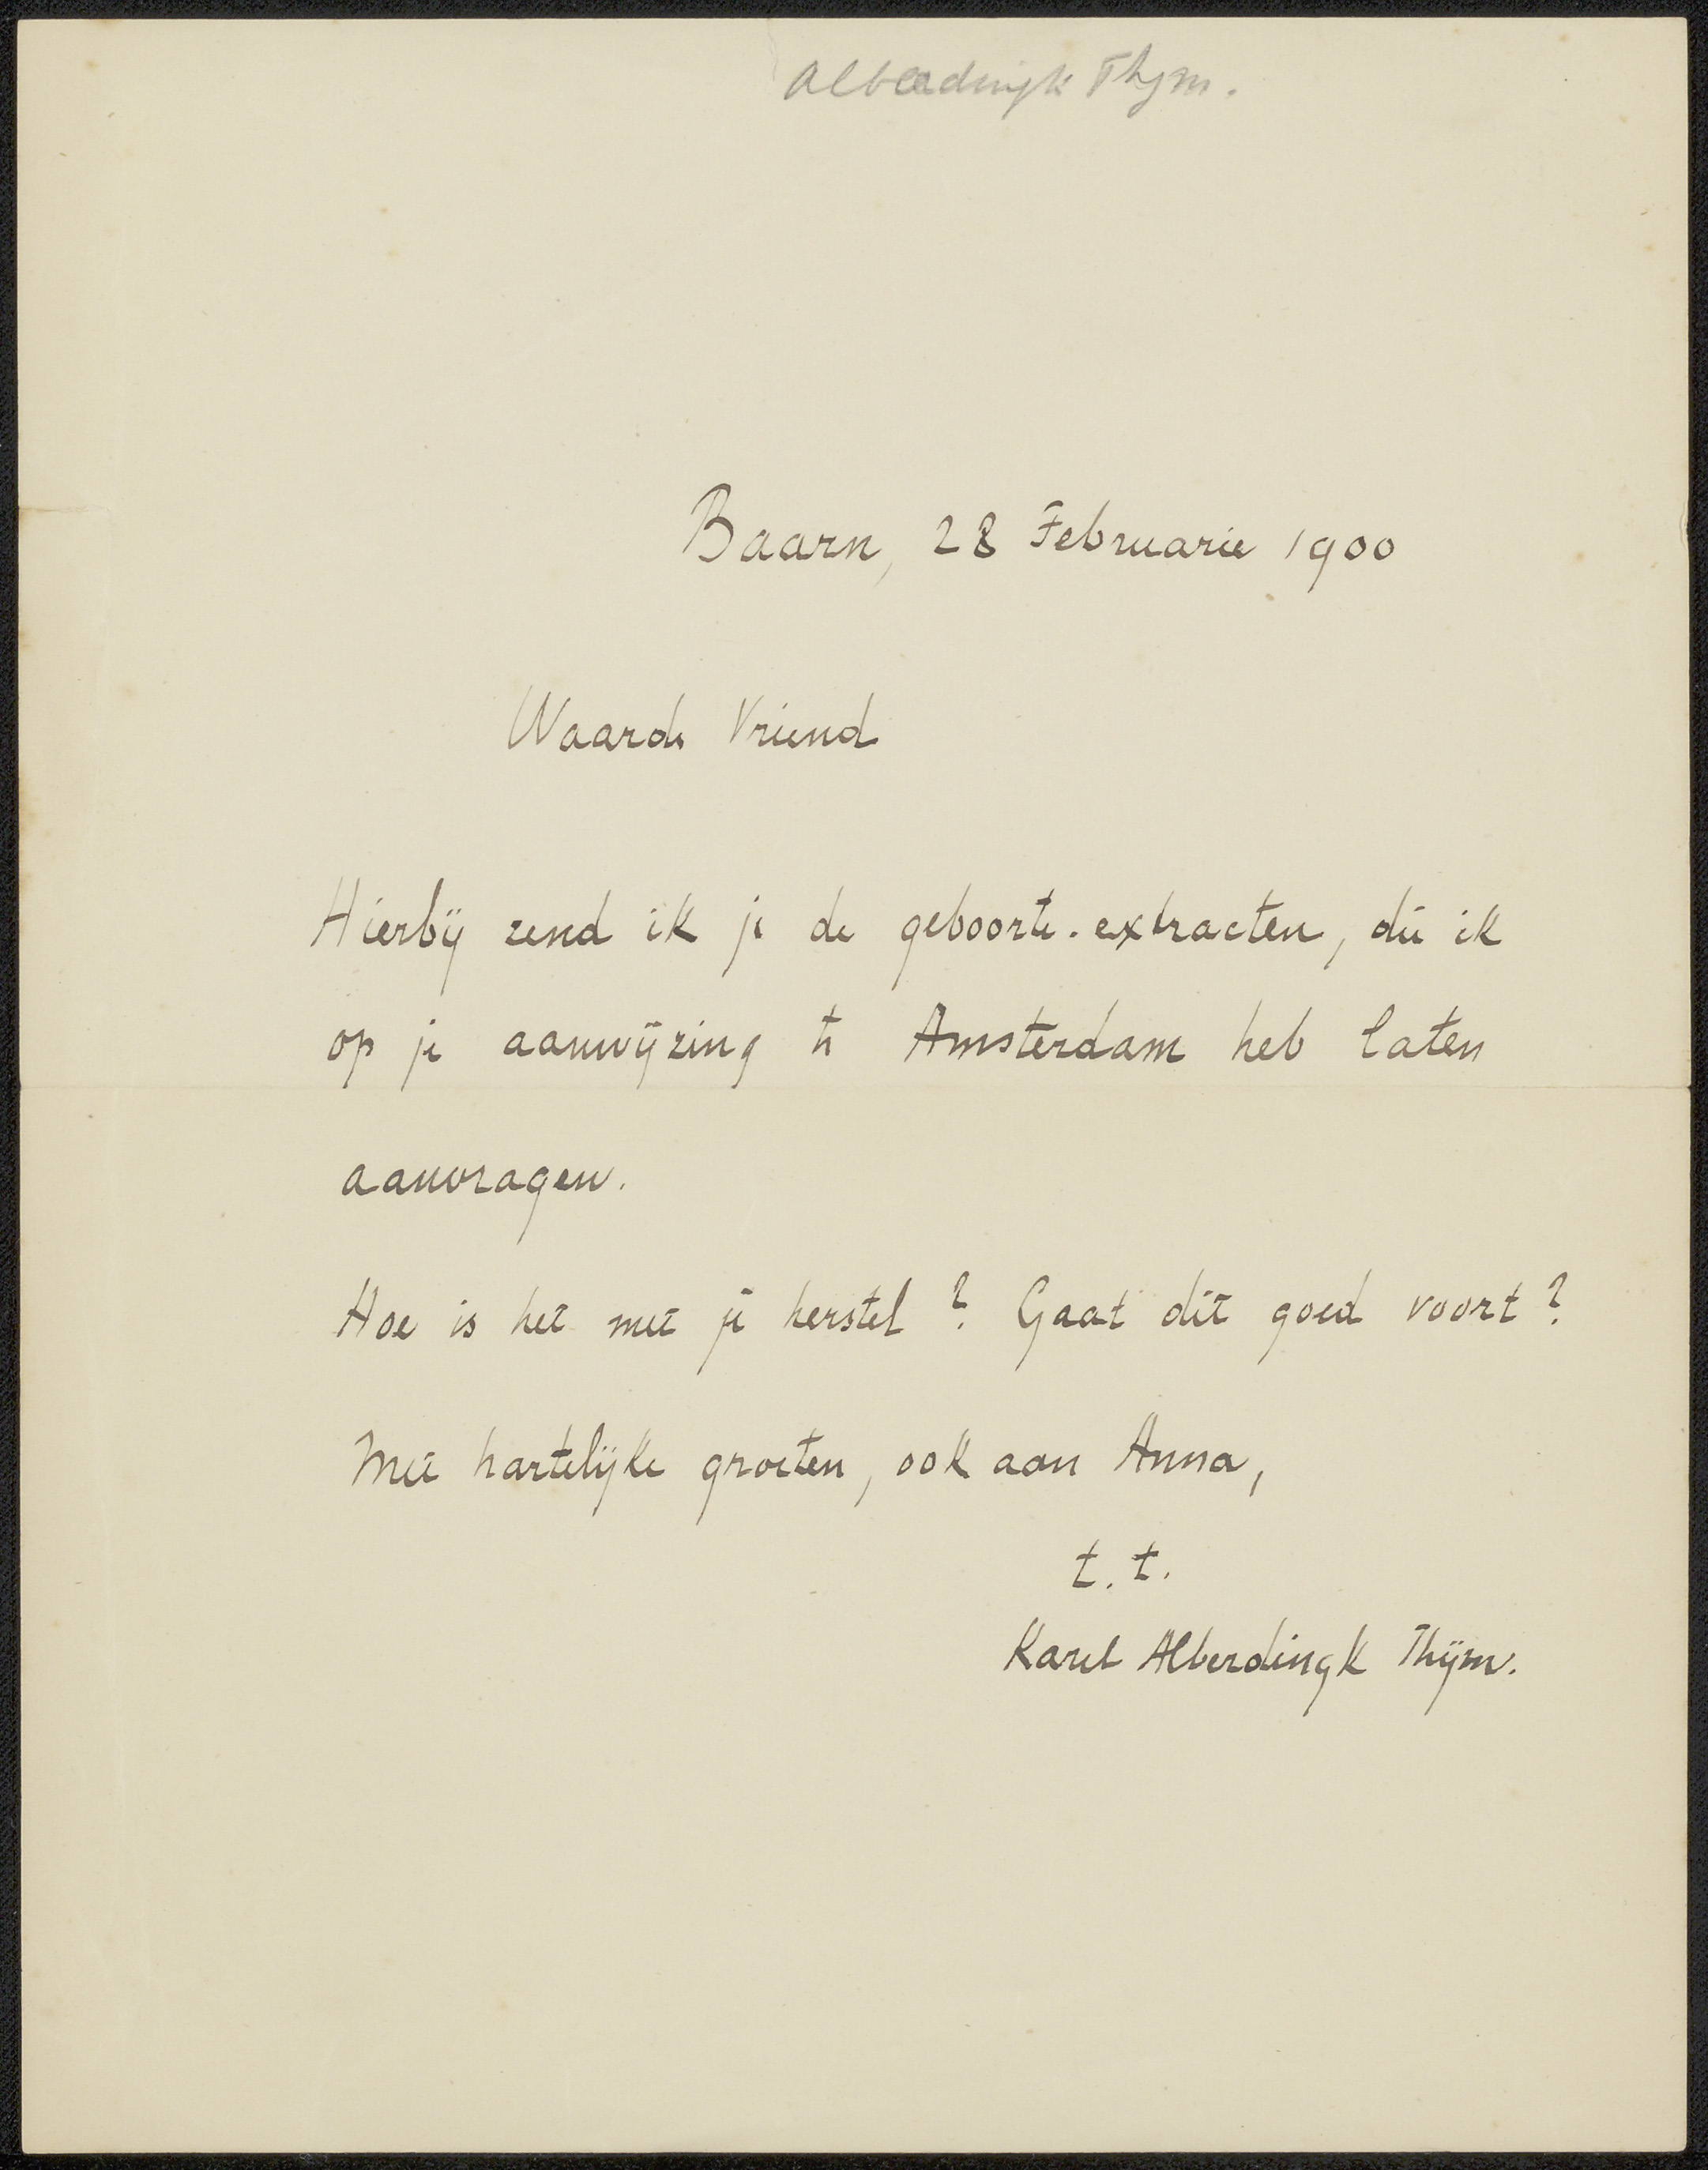 Alberdingk Thijm.
Baarn, 28 Februarie 1900
Waarde Vriend
Hierbij zend ik je de geboorte-extracten, die ik
op je aanwijzing te Amsterdam heb laten
aanvragen.
Hoe is het met je herstel? Gaat dit goed voort?
Met hartelijke groeten, ook aan Anna,
t.t.
Karel Alberdingk Thijm.